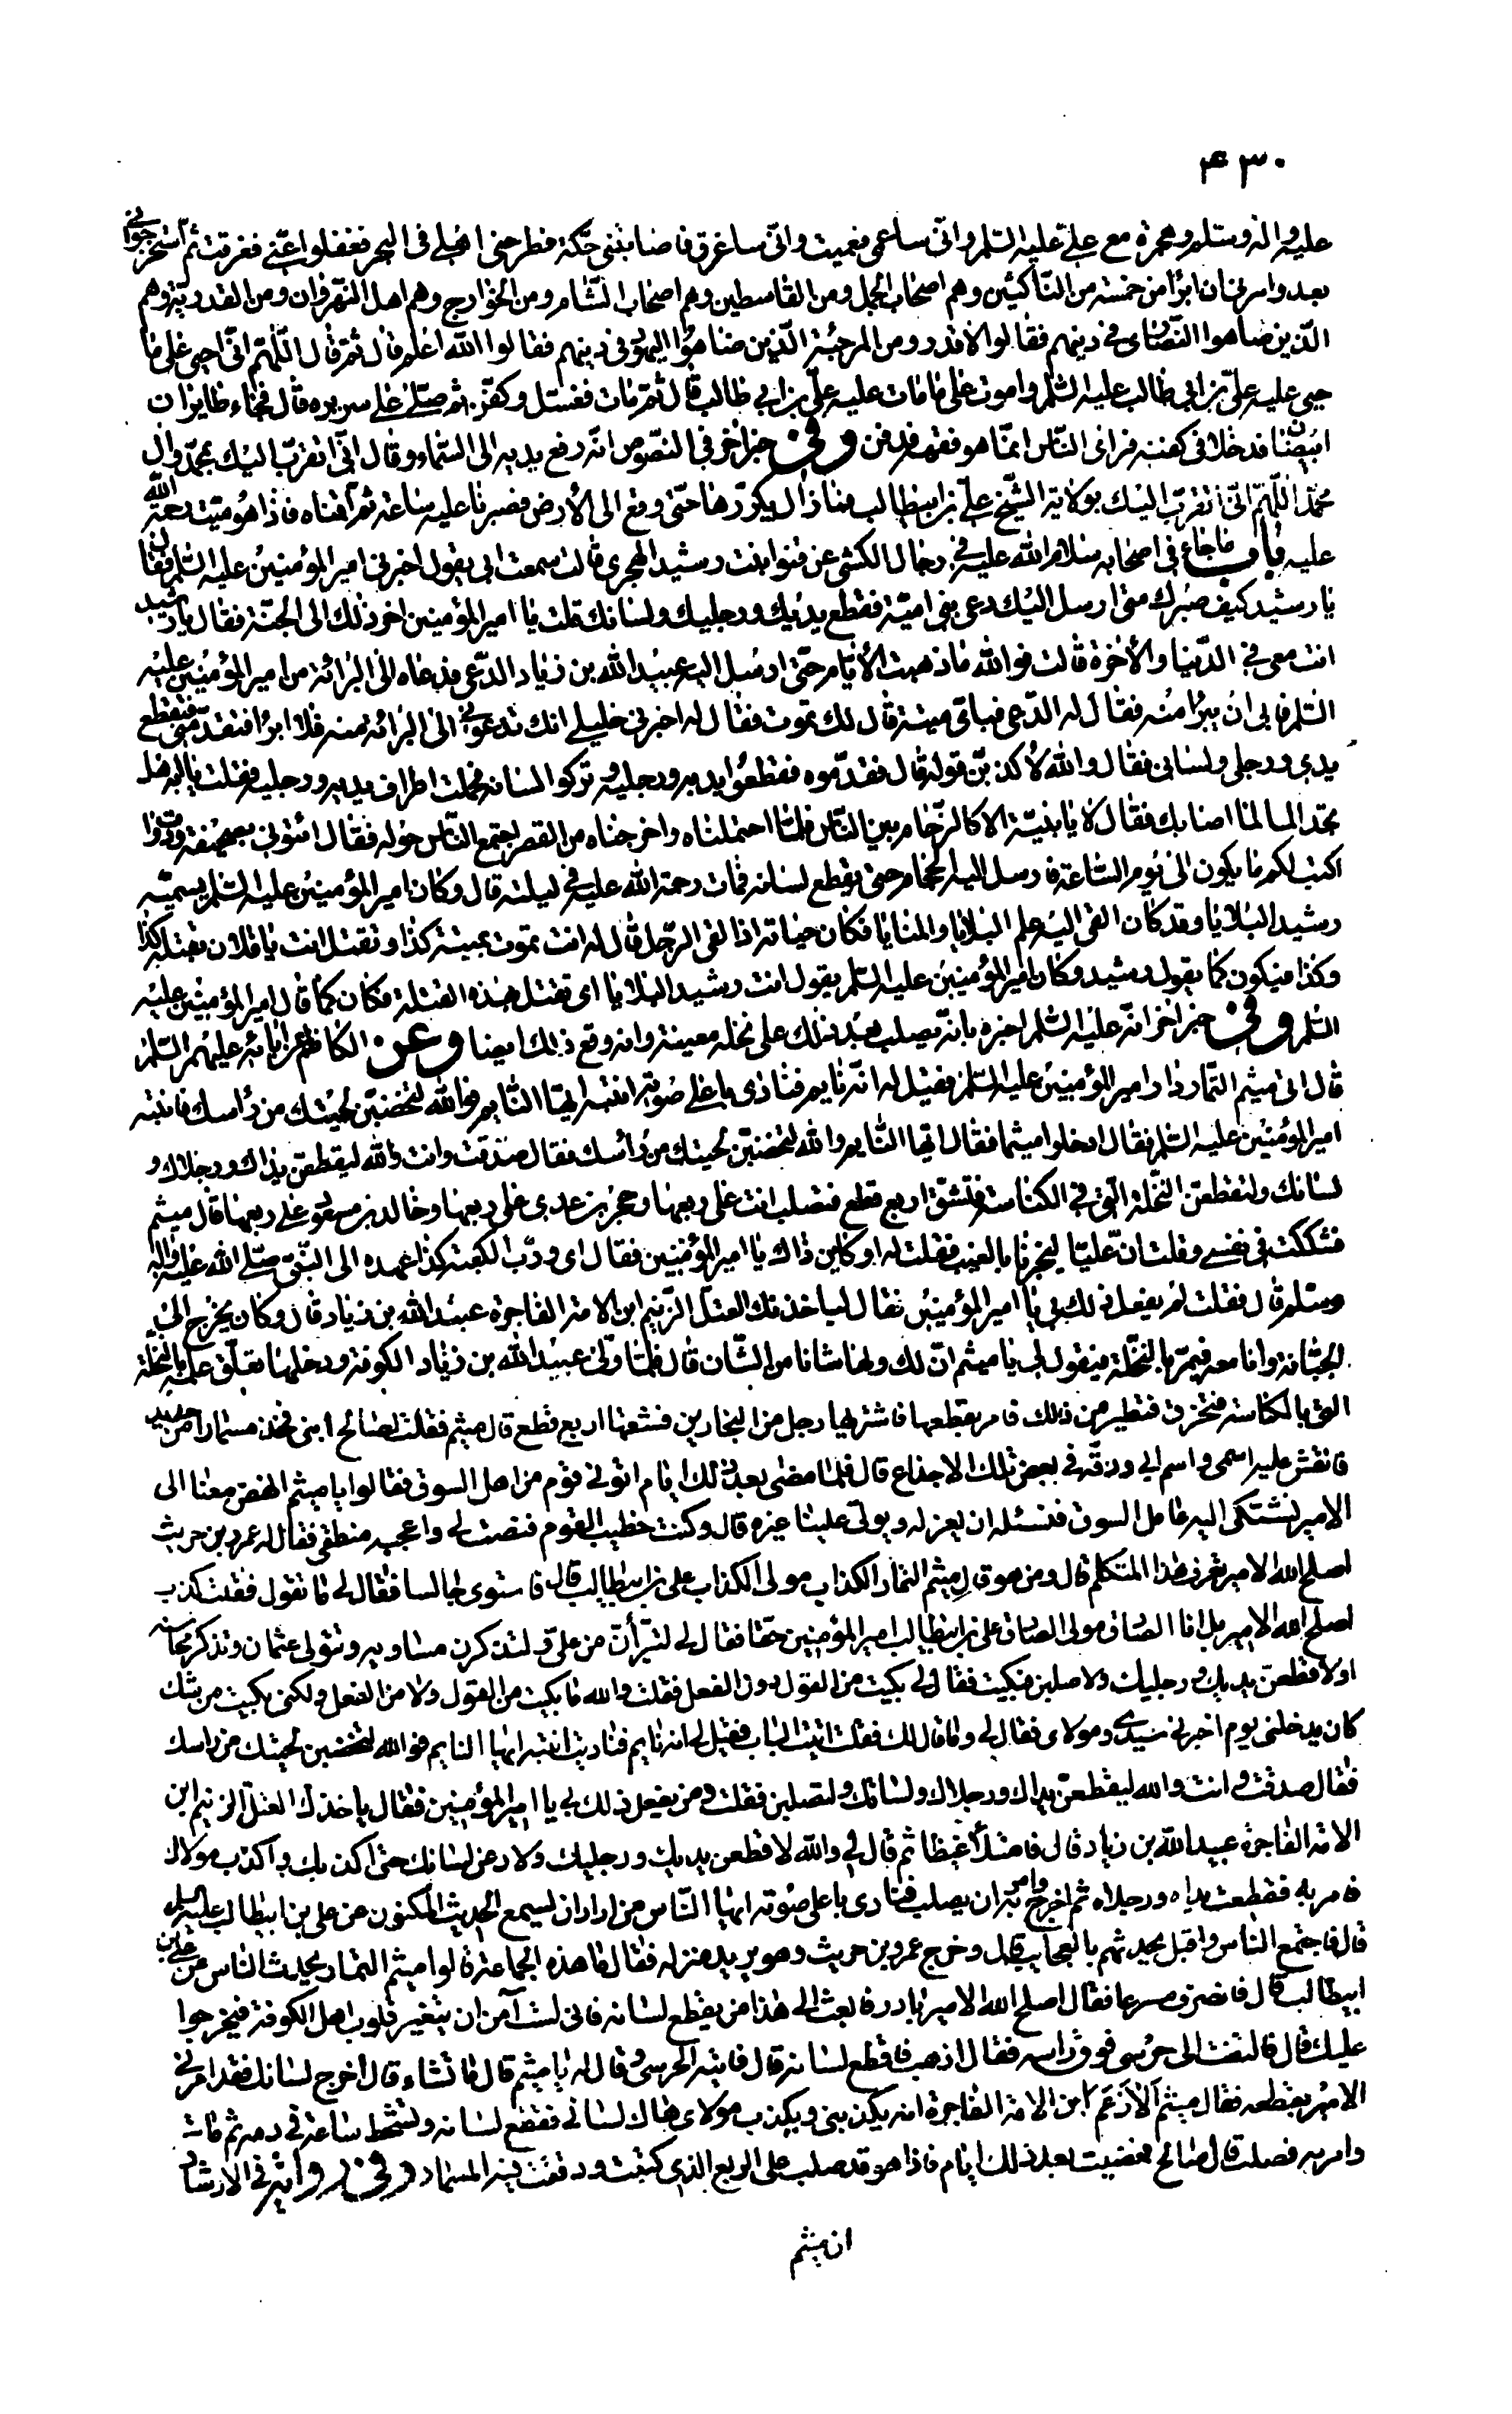 ۴۳۰
عليه واله وسلم وهجرة مع علي عليه السّلم وانّي ساعمى فعميت وانّي ساغرق فاصابتني حكّة فطرحني اهلي في البحر فغفلوا عنّي فغرقت ثم استخرجوني
بعد وامرني ان ابرأ من خمسة من النّاكثين وهم اصحاب الجمل ومن القاسطين وهم اصحاب الشّام ومن الخوارج وهم اهل النّهروان ومن القدريّة وهم
الّذين ضاهوا النّصارى في دينهم فقالوا لا قدر ومن المرجئة الّذين ضاهوا اليهود في دينهم فقالوا الله اعلم قال ثمّ قال اللّهمّ انّي احيى على ما
حيى عليه عليّ بن ابي طالب عليه السّلم واموت على ما مات عليه عليّ بن ابي طالب قال ثمّ مات فغسّل وكفّن ثم صلّى على سريره قال فجاء طايران
ابيضان فدخلا في كفنه فرأى النّاس انّما هو فقهه فدفن وفي خبر اخر في النّصوص انّه رفع يديه الى السّماء وقال انّي اتقرّب اليك بمحمّد وال
محمّد اللّهمّ انّي اتقرّب اليك بولاية الشّيخ عليّ بن ابيطالب فما زال يكرّرها حتّى وقع الى الأرض فصبرنا عليه ساعة ثمّ اقمناه فاذا هو ميّت رحمة الله
عليه باب ما جاء في اصحابه سلام الله عليه في رجال الكشي عن قنوا بنت رشيد الهجري قالت سمعت ابي يقول اخبرني امير المؤمنين عليه السّلم فقال
يا رشيد كيف صبرك متى ارسل اليك دعى بني اميّة فقطع يديك ورجليك ولسانك قلت يا امير المؤمنين اخر ذلك الى الجنّة فقال يا رشيد
انت معي في الدّنيا والأخرة قالت فوالله ما ذهبت الأيّام حتّى ارسل اليه عبيد الله بن زياد الدّعى فدعاه الى البرائة من امير المؤمنين عليه
السّلم فابى ان يبرأ منه فقال له الدّعى فباىّ ميتة قال لك تموت فقال له اخبرني خليلي انك تدعوني الى البرائة منه فلا ابرأ فتقدّمني فتقطع
يدي ورجلي ولساني فقال والله لأكذّبنّ قوله قال فقدّموه فقطعوا يديه ورجليه وتركوا لسانه فحملت اطراف يديه ورجليه فقلت يا ابه هل
تجد الما لما اصابك فقال لا يا بنيّة الا كالزّحام بين النّاس فلمّا احتملناه واخرجناه من القصر اجتمع النّاس حوله فقال ائتوني بصحيفة ودواة
اكتب لكم ما يكون الى يوم السّاعة فارسل اليه الحجّام حتى يقطع لسانه فمات رحمة الله عليه في ليلته قال وكان امير المؤمنين عليه السّلم يسمّيه
رشيد البلايا وقد كان القى اليه علم البلايا والمنايا فكان حياته اذا لقى الرجل قال له انت تموت بميتة كذا وتقتل انت يا فلان بقتلة كذا
وكذا فيكون كما يقول رشيد وكان امير المؤمنين عليه السّلم يقول انت رشيد البلايا اى تقتل بهذه القتلة فكان كما قال امير المؤمنين عليه
السّلم وفي خبر اخر انّه عليه السّلم اخبره بانّه يصلب بعد ذلك على نخلة معينة وانه وقع ذلك ايضا وعن الكاظم عن ابائه عليهم السّلم
قال اتى ميثم التمّار دار امير المؤمنين عليه السّلم فقيل له انّه نايم فنادى باعلى صوته انتبه ايّها النّايم فوالله لتخضبنّ لحيتك من رأسك فانتبه
امير المؤمنين عليه السّلم فقال ادخلوا ميثما فقال ايّها النّايم والله لتخضبنّ لحيتك من رأسك فقال صدقت وانت والله ليقطعنّ يداك ورجلاك و
لسانك ولتقطعنّ النّخلة الّتي في الكناسة فتشقّ اربع قطع فتصلب انت على ربعها وحجر بن عدي على ربعها وخالد بن مسعود على ربعها قال ميثم
فشككت في نفسي وقلت انّ عليّا ليخبرنا بالغيب فقلت له اوكاين ذاك يا امير المؤمنين فقال اى وربّ الكعبة كذا عهده الى النّبيّ صلّى الله عليه واله
وسلّم قال فقلت لم يفعل ذلك بي يا امير المؤمنين فقال لياخذنك العتلّ الزّنيم ابن الامة الفاجرة عبيد الله بن زياد قال وكان يخرج الى
الجبّانة وانا معه فيمرّ بالنخلة فيقول لي يا ميثم انّ لك ولها شانا من الشّان قال فلمّا ولّى عبيد الله بن زياد الكوفة ودخلها تعلّق علمه بالنخلة
التي بالكناسة فتخرق فتطير من ذلك فامر بقطعها فاشتريها رجل من النجارين فشقها اربع قطع قال ميثم فقلت لصالح ابني فخذ مسمارا من حديد
فانقش عليه اسمي واسم ابي ودقّه في بعض تلك الاجذاع قال فلما مضى بعد ذلك ايام اتوني قوم من اهل السوق فقالوا يا ميثم انهض معنا الى
الامير نشتكي اليه عامل السوق فنسئله ان يعزله ويولّى علينا غيره قال وكنت خطيب القوم فنصت لي واعجبه منطقي فقال له عمرو بن حريث
اصلح الله الامير تعرف هذا المتكلم قال ومن هو قال ميثم التمار الكذاب مولى الكذاب علي بن ابيطالب قال فاستوى جالسا فقال لي ما تقول فقلت كذب
اصلح الله الامير بل انا الصادق مولى الصادق علي بن ابيطالب امير المؤمنين حقا فقال لي لتبرّأنّ من عليّ ولتذكرن مساويه وتتولى عثمان وتذكر محاسنه
اولأقطعنّ يديك ورجليك ولاصلبنك فبكيت فقال لي بكيت من القول دون الفعل فقلت والله ما بكيت من القول ولا من الفعل ولكني بكيت من شك
كان يدخلني يوم اخبرني سيدي ومولاى فقال لي وما قال لك فقلت اتيت الباب فقيل لي انه نايم فناديت انتبه ايها النايم فوالله لتخضبن لحيتك من راسك
فقال صدقت وانت والله ليقطعنّ يداك ورجلاك ولسانك ولتصلبن فقلت ومن يفعل ذلك بي يا امير المؤمنين فقال ياخذك العتل الزنيم ابن
الامة الفاجرة عبيد الله بن زياد قال فامتلأ غيظا ثم قال لي والله لاقطعن يديك ورجليك ولادعن لسانك حتى اكذبك واكذب مولاك
فامر به فقطعت يداه ورجلاه ثم اخرج وامر به ان يصلب فنادى باعلى صوته ايها النّاس من اراد ان يسمع الحديث المكنون عن علي بن ابيطالب عليه السلم
قال فاجتمع الناس واقبل يحدثهم بالعجايب قال وخرج عمرو بن حريث وهو يريد منزله فقال ما هذه الجماعة قالوا ميثم التمار يحدث الناس عن علي بن
ابيطالب قال فانصرف مسرعا فقال اصلح الله الامير بادر فابعث الى هذا من يقطع لسانه فاني لست آمن ان يتغير قلوب اهل الكوفة فيخرجوا
عليك قال فالتفت الى حرسى فوق راسه فقال اذهب فاقطع لسانه قال فاتيه الحرسى وقال له يا ميثم قال ما تشاء قال أخرج لسانك فقد امرني
الامير بقطعه فقال ميثم ألا زعم ابن الامة الفاجرة انه يكذبني ويكذب مولاى هاك لساني فقطع لسانه وتشحط ساعة في دمه ثم مات
وامر به فصلب قال صالح فمضيت بعد ذلك بايام فاذا هو قد صلب على الربع الذي كتبت ودققت فيه المسمار وفي رواية في الارشاد
ان ميثم